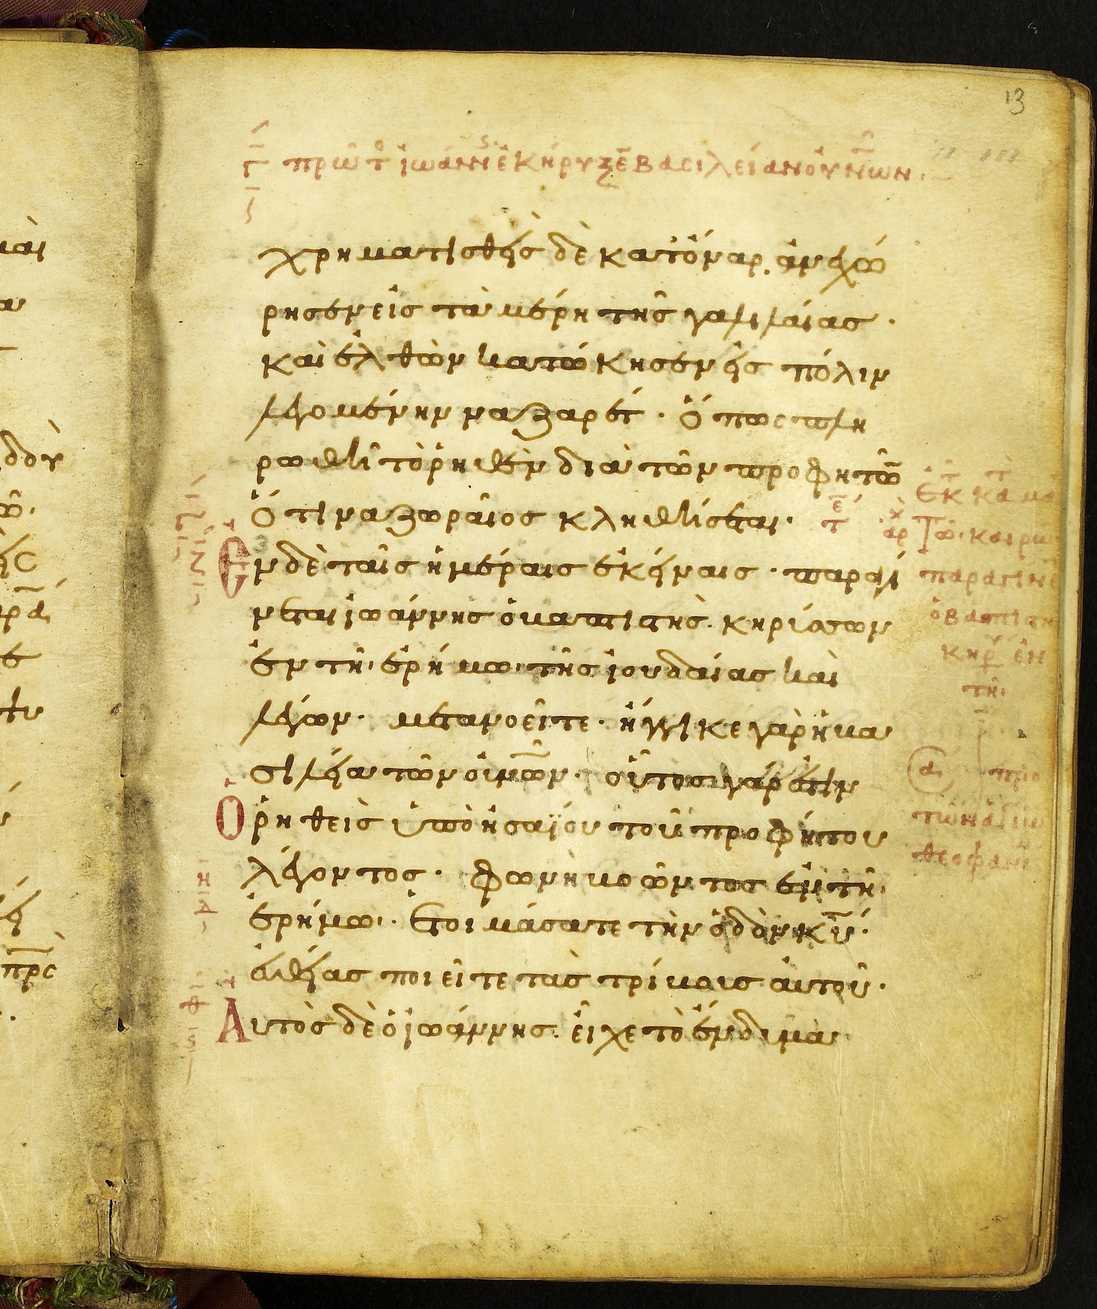 Γ πρῶτ ἰωάννης ἐκήρυξε βασιλείαν οὐνῶν
χρηματισθεὶς δὲ κατ' ὄναρ, ἀνεχώ
ρησεν εἰς τὰ μέρη τῆς γαλιλαίας ·
καὶ ἐλθὼν κατώκησεν εἰς πόλιν
λεγομένην ναζαρέτ · ὅπως πλη
ρωθῆ τὸ ῥηθὲν διὰ τῶν προφητῶ
ὅτι ναζωραῖος κληθήσεται ·
Ἐν δὲ ταῖς ἡμέραις ἐκείναις · παραγί
νεται ἰωάννης ὁ βαπτιστὴς · κηρύσσων
ἐν τῆ ἐρήμω τῆς ἰουδαίας καὶ
λέγων · μετανοεῖτε · ἤγγικε γὰρ ἡ βα
σιλεία τῶν οὐνῶν · οὗτος γάρ ἐστιν
Ὁ ῥηθεὶς ὑπὸ ἠσαΐου τοῦ προφήτου
λέγοντος · φωνὴ βοῶντος ἐν τῆ
ἐρήμω · ἑτοιμάσατε τὴν ὁδὸν κυ ·
εὐθείας ποιεῖτε τὰς τρίβους αὐτοῦ ·
Αὐτὸς δὲ ὁ ἰωάννης · εἶχε τὸ ἔνδυμα
13
παραγίνε
ὁ βαπτιστη
κηρ ἐν
τῆ